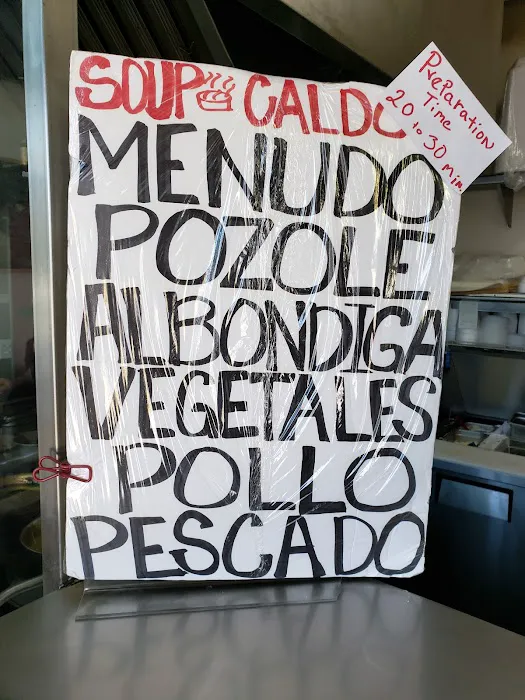 SOUP CALDO
MENUDO
POZOLE
ALBONDIGA
VEGETALES
POLLO
PESCADO
Preparation
Time
20 to 30 min